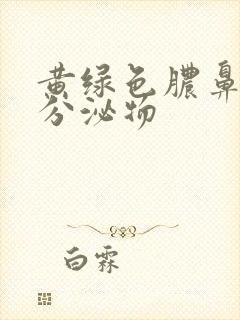 黄绿色脓鼻
分泌物
白霖